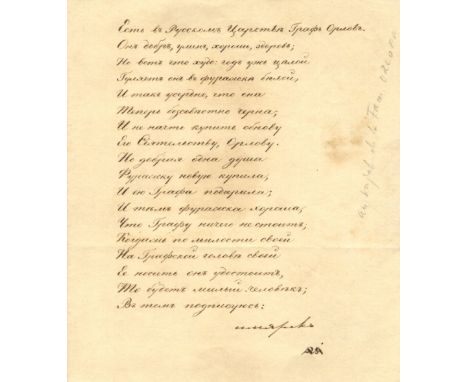 Есть въ Русскомъ Царствѣ Графъ Орловъ.
Онъ добръ, уменъ, хорошъ, здоровъ;
Но вотъ что худо: годъ ужъ цѣлой
Гуляетъ онъ въ фуражкѣ бѣлой,
И такъ усердно, что она
Теперь безсовѣстно черна;
И не начто купить обнову
Его Сіятельству, Орлову.
Но добрая одна душа
Фуражку новую купила;
И ею Графа подарила;
И тѣмъ фуражка хороша,
Что Графу ничего не стоитъ;
Когдажъ по милости своей
На Графской головѣ своей
Ее носить онъ удостоитъ,
То будетъ милый человѣкъ;
Въ томъ подписуюсь:
имярекъ
de la fam.